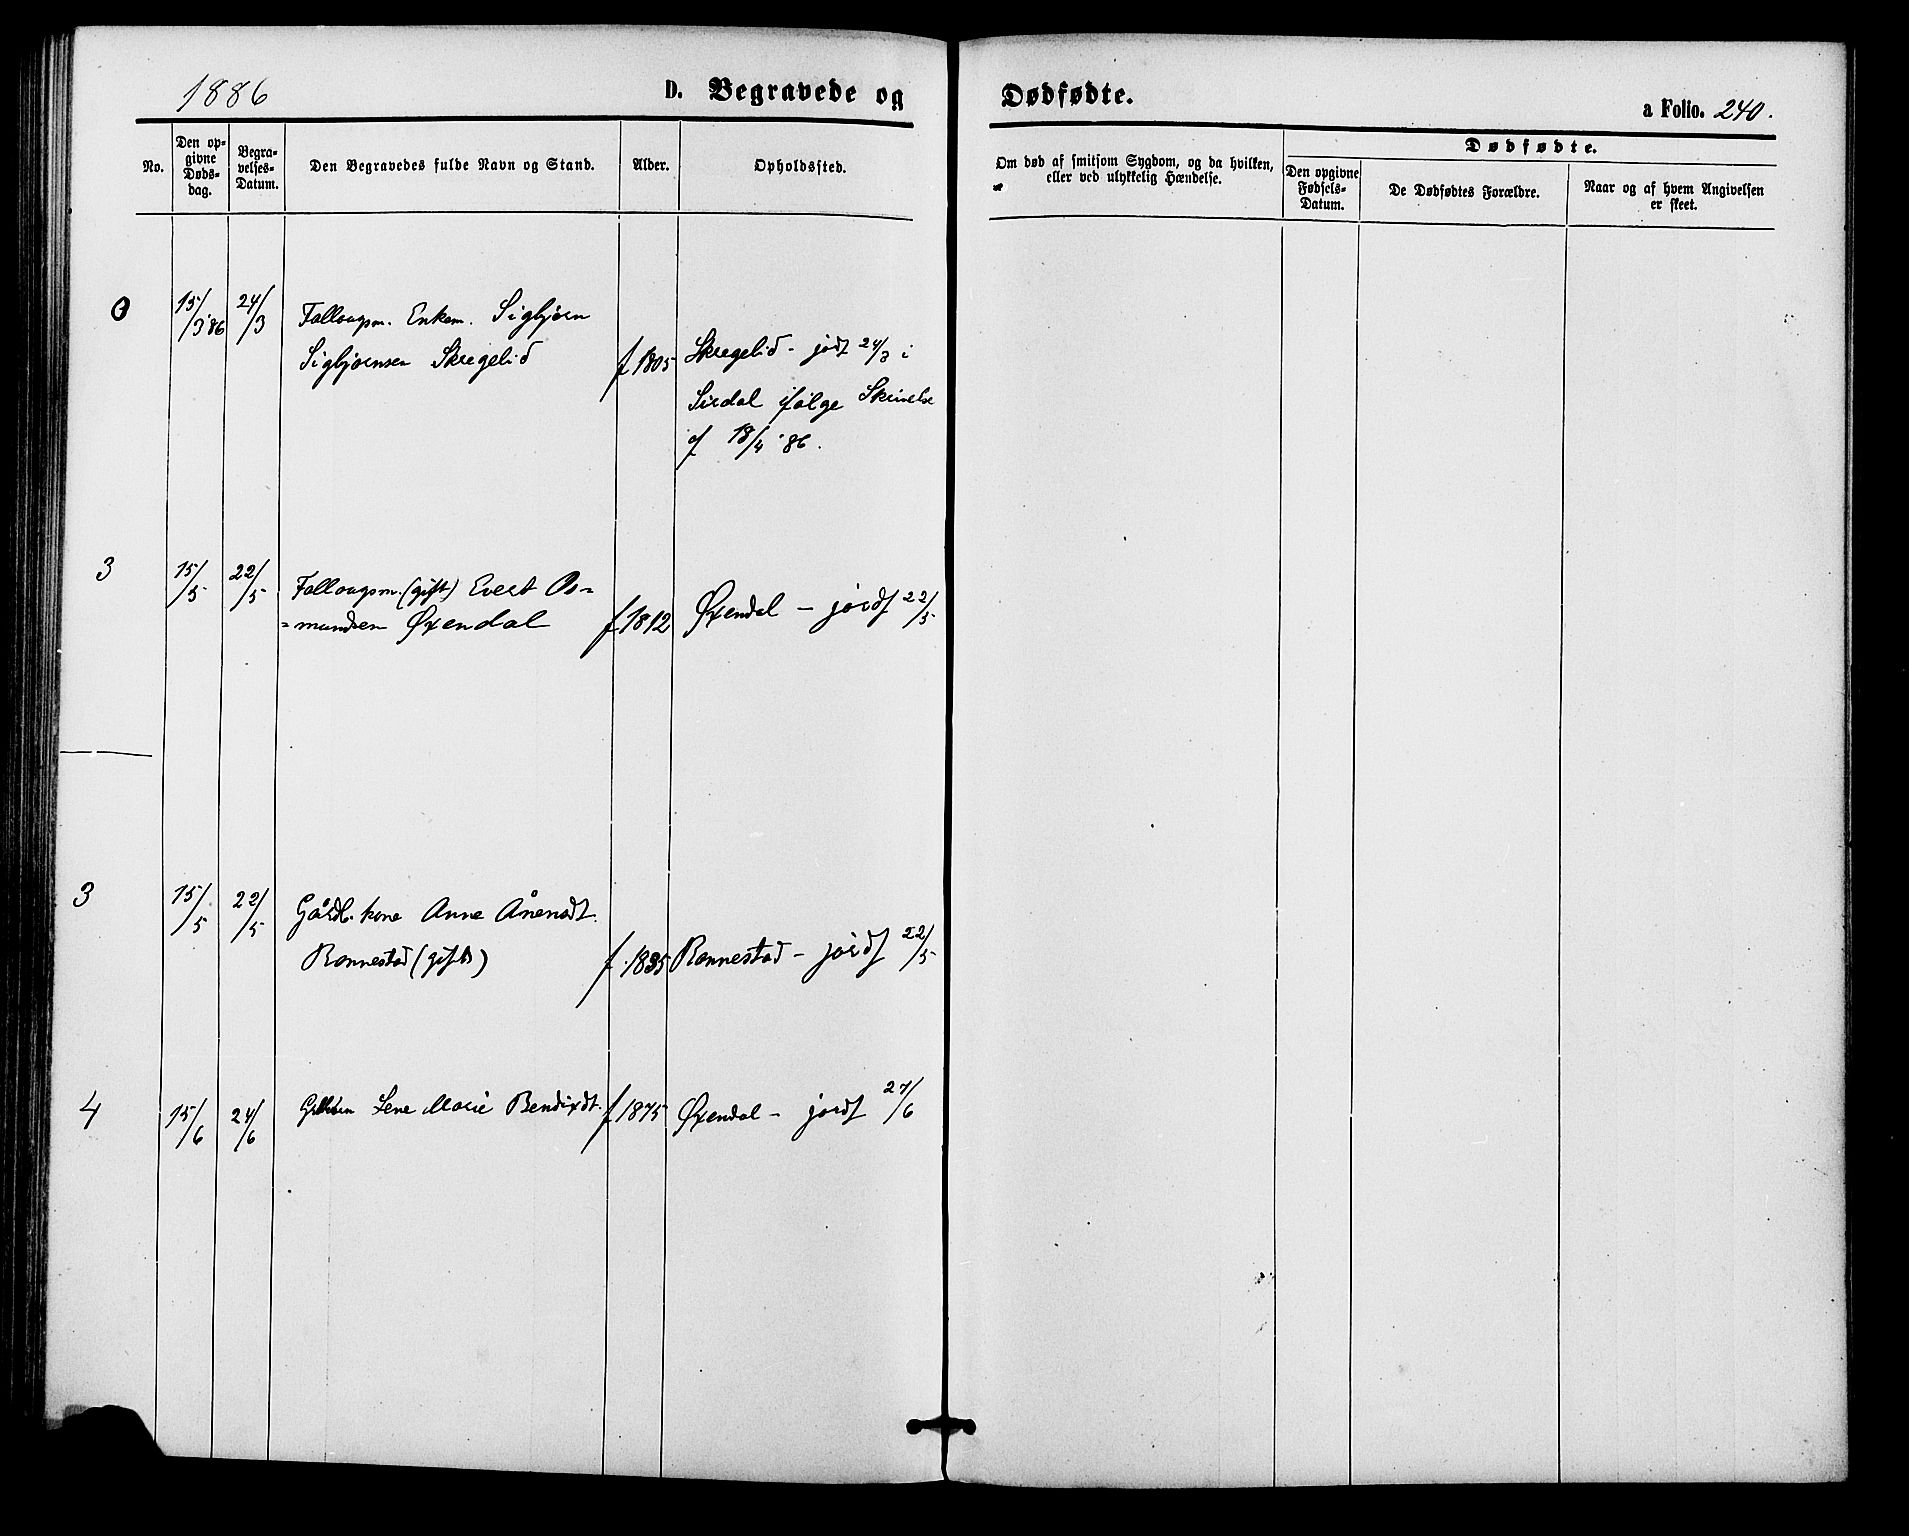 1886
D. Begravede og Dødfødte.
a Folio. 240.
No.
Den op-
givne
Døds-
dag.
Begra-
velses-
Datum.
Den Begravedes fulde Navn og Stand.
Alder.
Opholdssted.
Om død af smitsom Sygdom, og da hvilken,
eller ved ulykkelig Hændelse.
Dødfødte.
Den opgivne
Fødsels-
Datum.
De Dødfødtes Forældre.
Naar og af hvem Angivelsen
er skeet.
0 15/3 '86 24/3 Enkem. Sigbjørn
Sigbjørnsen Skregelid f 1805 Skregelid - jodf 24/3 i
Sirdal ifølge Skrivelse
af 18/4 '86.
3 15/5 22/5 (gift) Evert As=
=mundsen Øxendal f 1812 Øxendal - jordf 22/5
3 15/5 22/5 Gårdb. kone Anne Ånensdt.
Ronnestad (gift) f. 1835 Ronnestad - jordf 22/5
4 15/6 24/6 Lene Marie Bendixdt. f 1875 Øxendal - jordf 27/6